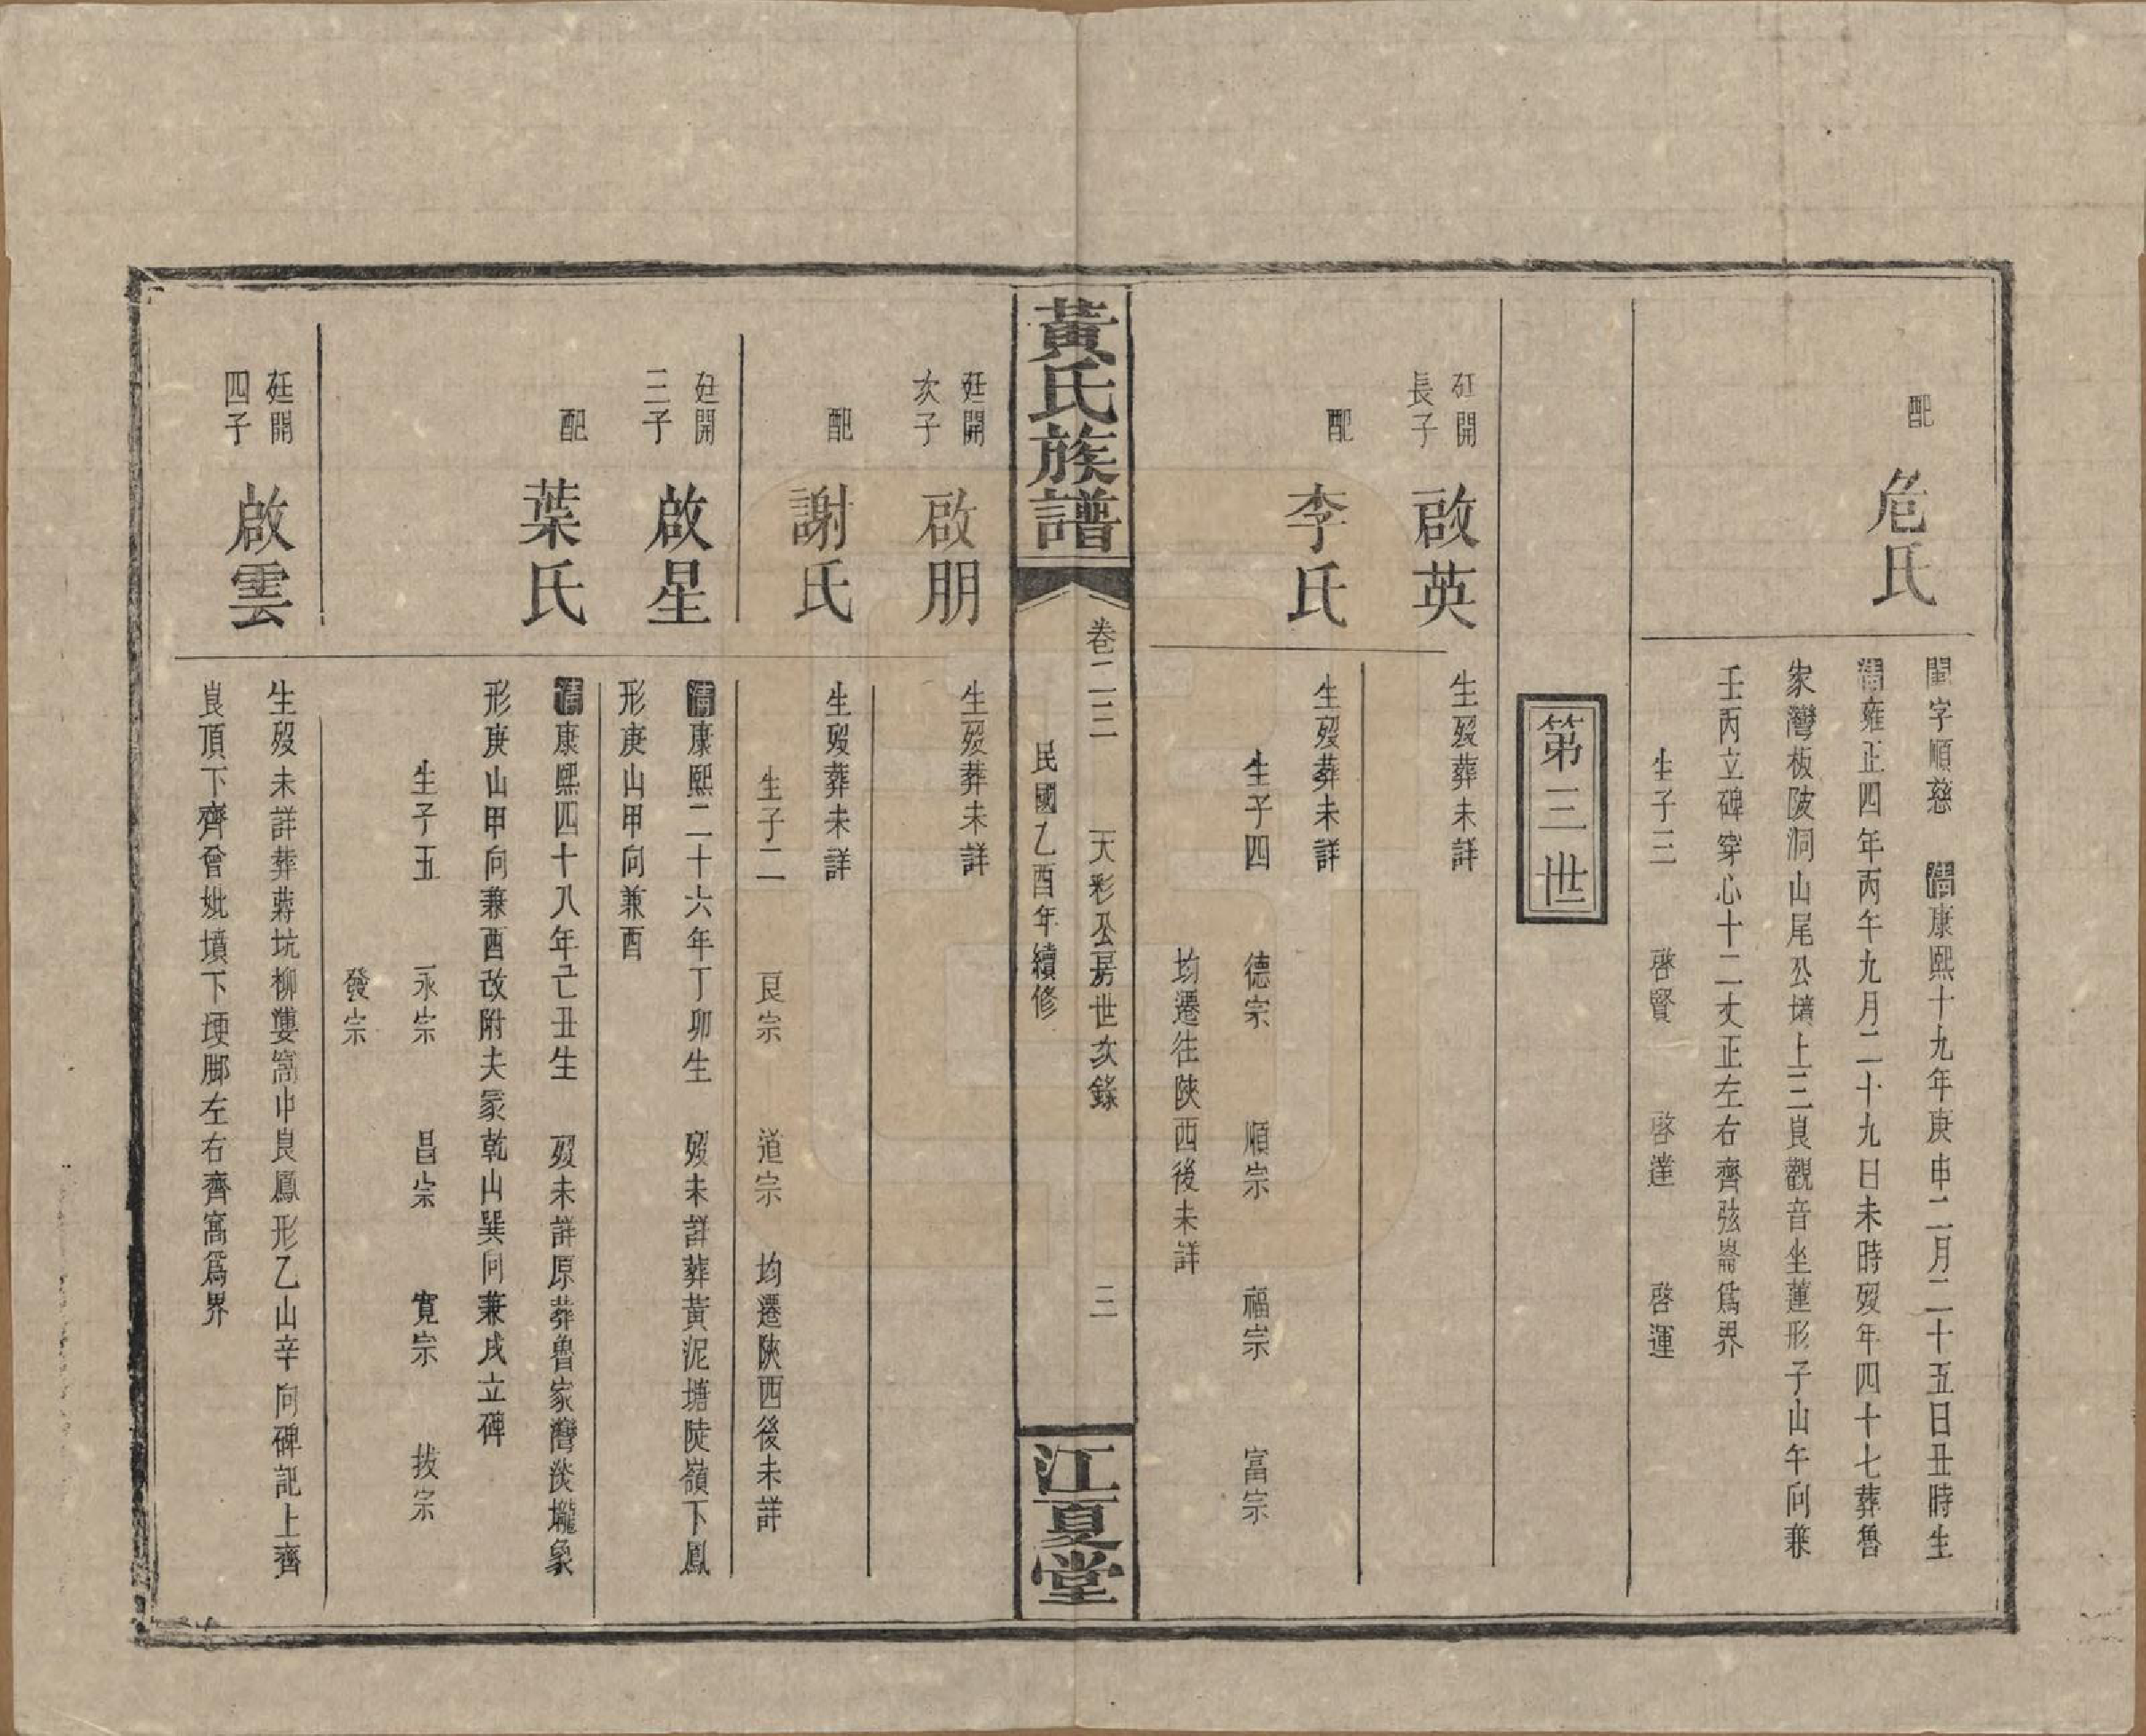 配
危氏
閨字順慈 清康熙十九年庚申二月二十五日丑時生
清雍正四年丙午九月二十九日未時歿年四十七葬魯
家灣板陂洞山尾公墳上三艮觀音坐蓮形子山午向兼
壬丙立碑穿心十二丈正左右齊弦崙爲界
生子三 啓賢 啓達 啓運
第三世
廷開
長子
啟英
生歿葬未詳
配
李氏
生歿葬未詳
生子四 德宗 順宗 福宗 富宗
均遷往陝西後未詳
黃氏族譜
卷二三
天彩公房世次錄
三
民國乙酉年續修
江夏堂
廷開
次子
啟朋
生歿葬未詳
配
謝氏
生歿葬未詳
生子二 良宗 道宗 均遷陝西後未詳
廷開
三子
啟星
清康熙二十六年丁卯生 歿未詳葬黃泥塘陡嶺下鳳
形庚山甲向兼酉
配
葉氏
清康熙四十八年己丑生 歿未詳原葬魯家灣淡壠象
形庚山甲向兼酉改附夫冡乾山巽向兼戌立碑
生子五 永宗 昌宗 寛宗 拔宗
發宗
廷開
四子
啟雲
生歿未詳葬蔣坑柳簍窩中艮鳳形乙山辛向碑記上齊
艮頂下齊會妣墳下埂脚左右齊窩爲界